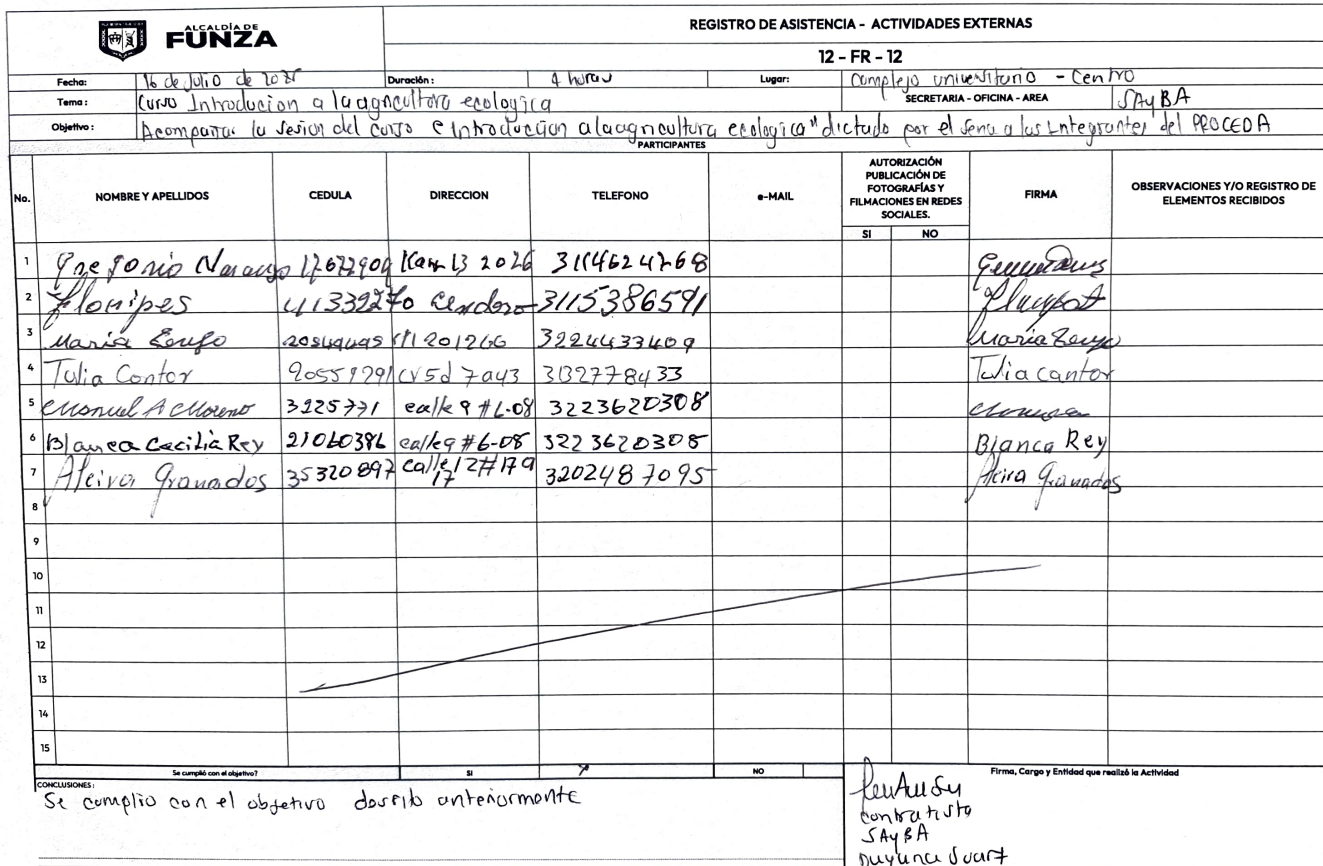 ALCALDÍA DE
FUNZA
REGISTRO DE ASISTENCIA - ACTIVIDADES EXTERNAS
12 - FR - 12
Fecha: 16 de Julio de 2025 Duración: 4 horas Lugar: Complejo universitario - Centro
Tema: Curso Introducion a la agricultura ecologica SECRETARIA - OFICINA - AREA SAyBA
Objetivo: Acompañar la sesion del curso e introduccion a la agricultura ecologica" dictado por el sena a los integrantes del PROCEDA
PARTICIPANTES
No. NOMBRE Y APELLIDOS CEDULA DIRECCION TELEFONO e-MAIL AUTORIZACIÓN PUBLICACIÓN DE FOTOGRAFÍAS Y FILMACIONES EN REDES SOCIALES. SI NO FIRMA OBSERVACIONES Y/O REGISTRO DE ELEMENTOS RECIBIDOS
1 Gregorio Naranjo 13 2026 3114624768
2 Flonipes 41339270 3115386591
3 Maria 3224433409 Maria
4 Tulia Contor 20559291 cr5d 7a43 3132778433 Tulia cantor
5 Manuel A Moreno 3225771 calle 9 #6-08 3223620308
6 Blanca Cecilia Rey 21060386 calle 9 #6-08 3223620308 Blanca Rey
7 Alcira Granados 35320897 calle 12 #17a 17 3202487095 Alcira Granados
8
9
10
11
12
13
14
15
Se cumplió con el objetivo? SI NO Firma, Cargo y Entidad que realizó la Actividad
CONCLUSIONES:
Se cumplio con el objetivo anteriormente
contratista
SAyBA